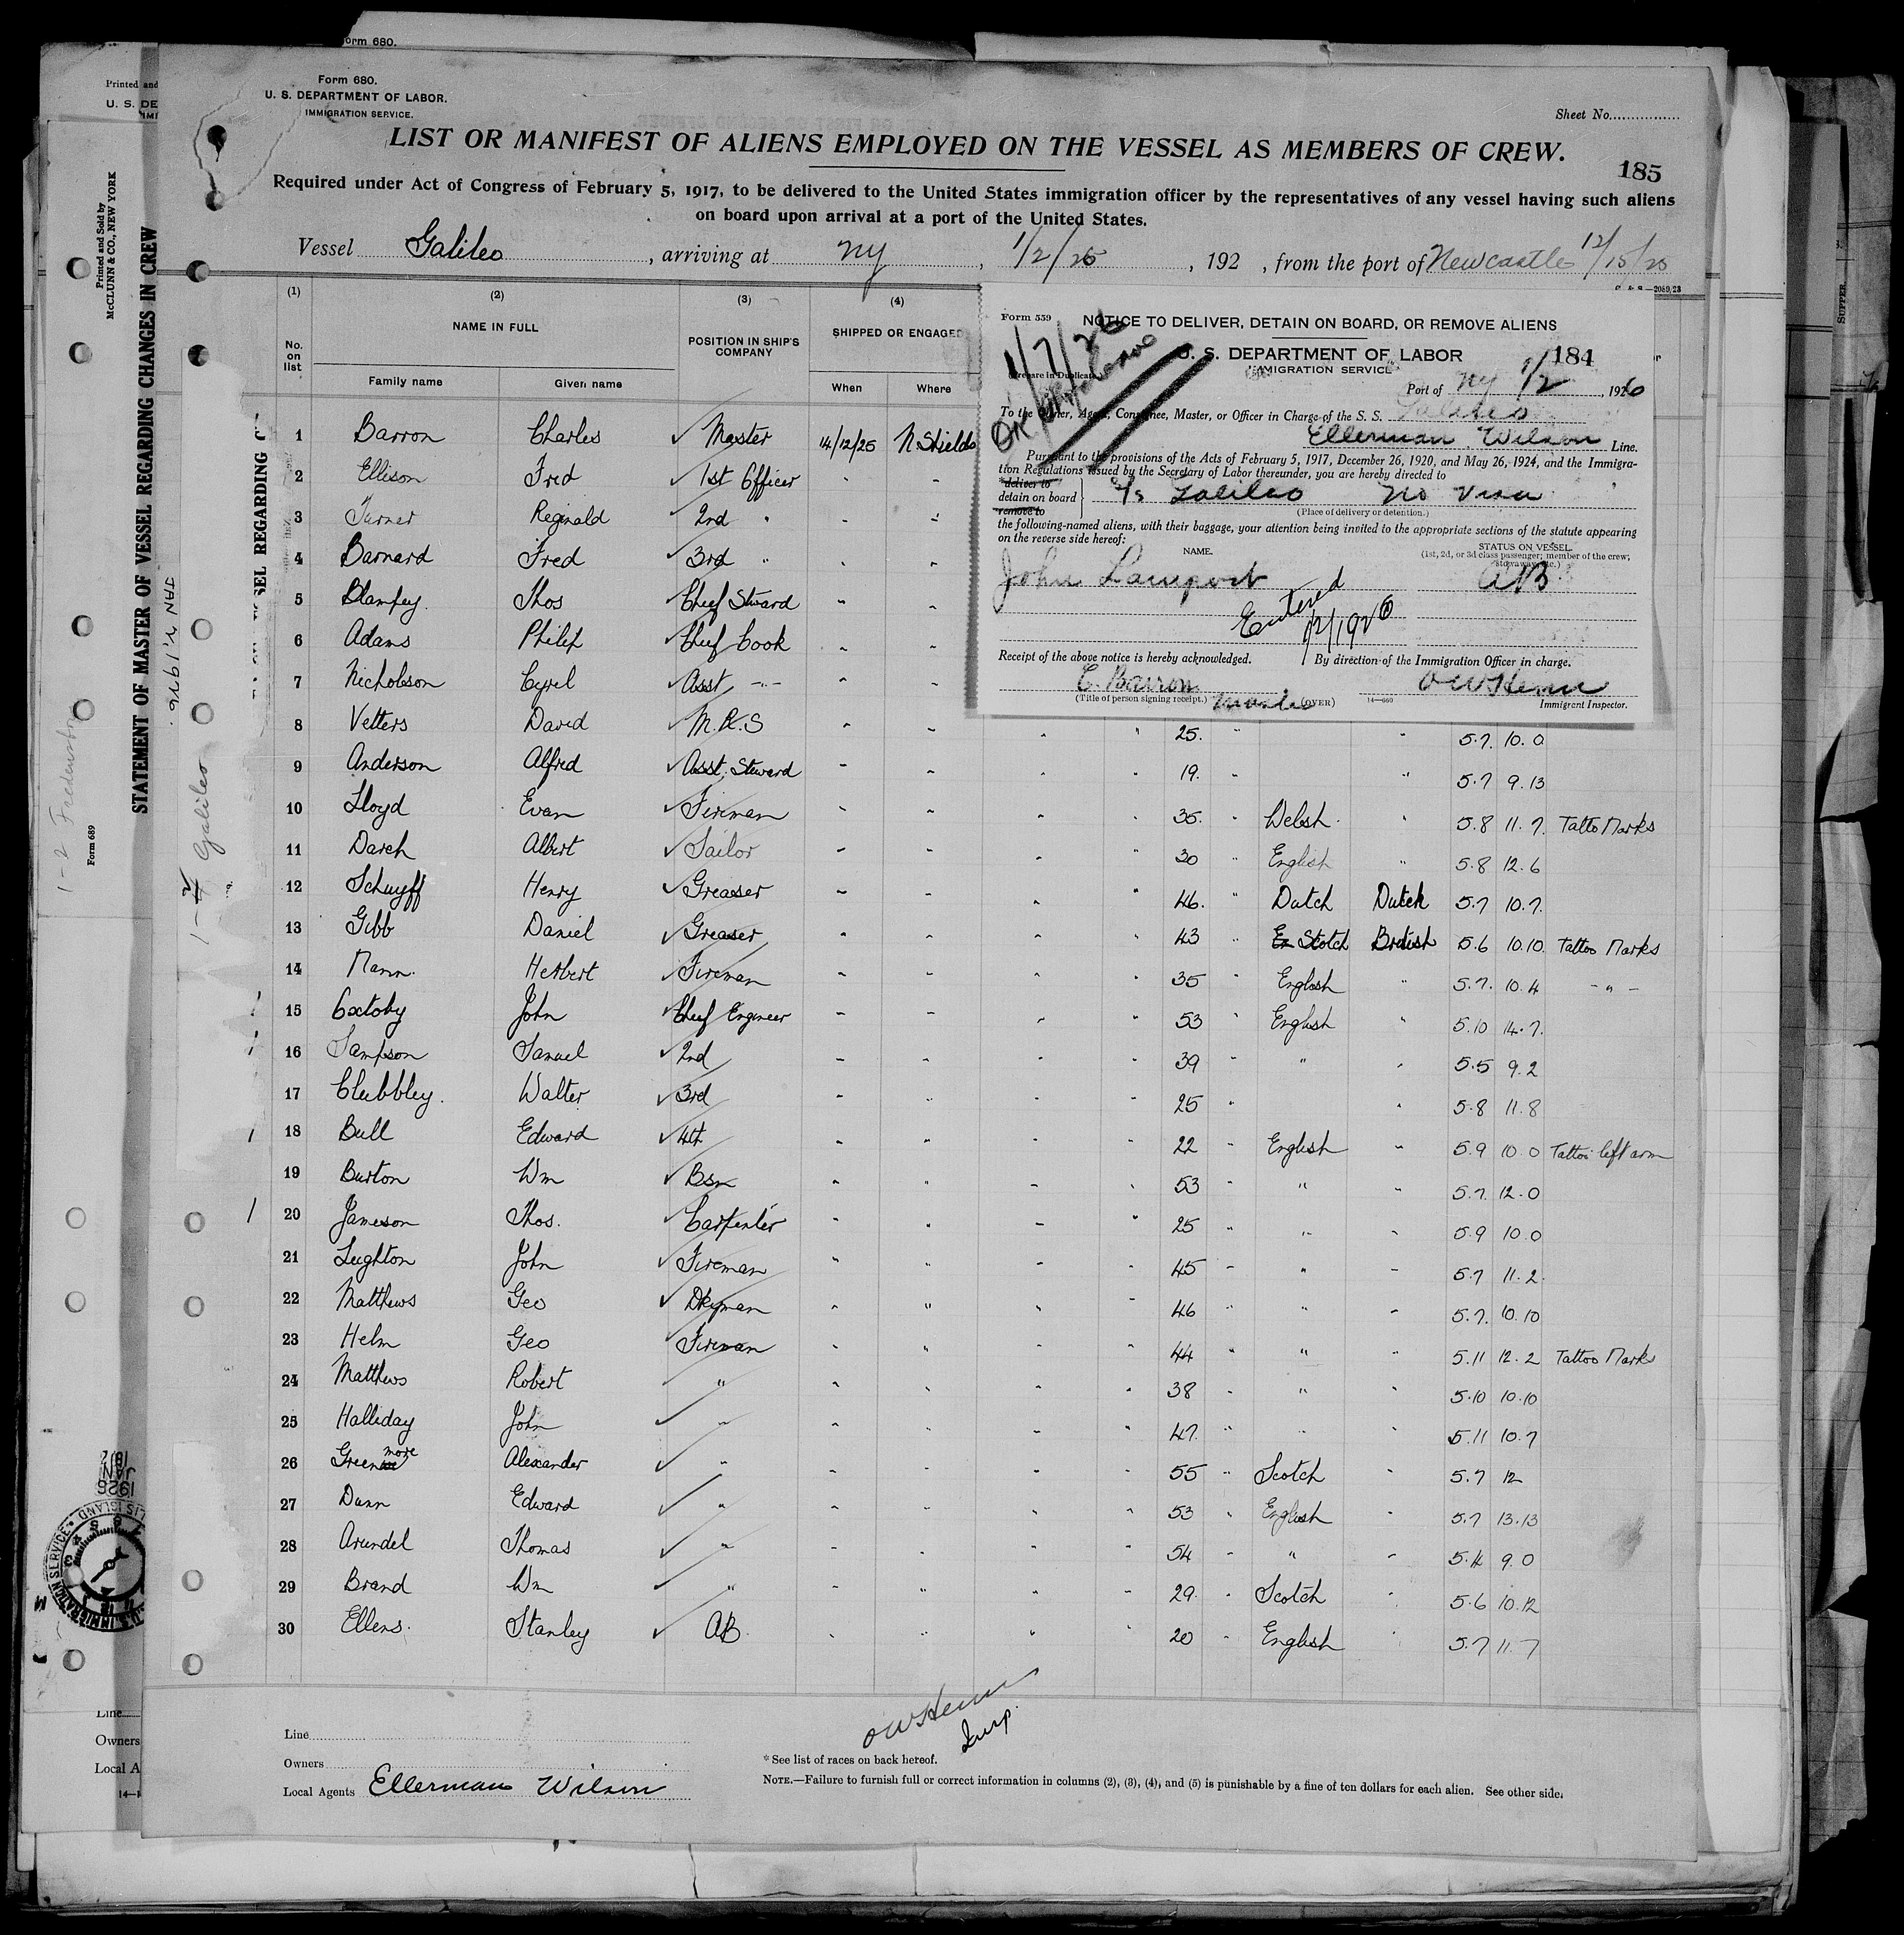 Form 680.
Form 680.
U. S. DEPARTMENT OF LABOR.
IMMIGRATION SERVICE.
Sheet No.
LIST OR MANIFEST OF ALIENS EMPLOYED ON THE VESSEL AS MEMBERS OF CREW.
185
Required under Act of Congress of February 5, 1917, to be delivered to the United States immigration officer by the representatives of any vessel having such aliens
on board upon arrival at a port of the United States.
Vessel Galileo, arriving at NY, 1/2/26, 192 , from the port of Newcastle 12/15/25
(1) (2) (3) (4)
No. on list NAME IN FULL POSITION IN SHIP'S COMPANY SHIPPED OR ENGAGED
Family name Given name When Where
1 Barron Charles Master 14/12/25 N Shields
2 Ellison Fred 1st Officer " "
3 Turner Reginald 2nd " " "
4 Barnard Fred 3rd " " "
5 Blampey. Thos Chief Steward " "
6 Adams Philip Chief Cook " "
7 Nicholson Cyril Asst -"- " "
8 Vetters David M.R.S " " " " 25. " " 5.7. 10.0
9 Anderson Alfred Asst. Steward " " " " 19. " " 5.7 9.13
10 Lloyd Evan Fireman " " " " 35. " Welsh. " 5.8 11.7. Tatto Marks
11 Darch Albert Sailor " " " " 30 " English " 5.8 12.6
12 Schuyff Henry Greaser " " " " 46. " Dutch Dutch 5.7 10.7.
13 Gibb Daniel Greaser " " " " 43 " Scotch British 5.6 10.10. Tattoo Marks
14 Mann. Herbert Fireman " " " " 35 " English " 5.7. 10.4 -"-
15 Oxtoby John Chief Engineer " " " " 53 " English " 5.10 14.7.
16 Sampson Samuel 2nd " " " " 39 " " " 5.5 9.2
17 Clubbley. Walter 3rd " " " " 25 " " 5.8 11.8
18 Bull Edward 4th " " " " 22 " English " 5.9 10.0 Tattoo left arm
19 Burton Wm Bsn " " " " 53 " " " 5.7. 12.0
20 Jameson Thos. Carpenter " " " " 25 " " " 5.9 10.0
21 Leighton John Fireman " " " " 45 " " " 5.7 11.2.
22 Matthews Geo Dkyman " " " " 46 " " " 5.7. 10.10
23 Helm Geo Fireman " " " " 44 " " " 5.11 12.2 Tattoo Marks
24 Matthews Robert " " " " " 38 " " " 5.10 10.10
25 Halliday John " " " " " 47. " " " 5.11 10.7
26 Greenmore Alexander " " " " " 55 " Scotch " 5.7 12
27 Dunn Edward " " " " " 53 " English " 5.7 13.13
28 Arundel Thomas " " " " " 54 " " " 5.4 9.0
29 Brand Wm " " " " " 29. " Scotch " 5.6 10.12
30 Ellens. Stanley AB. " " " " 20 " English " 5.7 11.7
OWStenn
Insp.
Line
Owners
Local Agents Ellerman Wilson
* See list of races on back hereof.
NOTE.—Failure to furnish full or correct information in columns (2), (3), (4), and (5) is punishable by a fine of ten dollars for each alien. See other side.
Form 559
NOTICE TO DELIVER, DETAIN ON BOARD, OR REMOVE ALIENS
U. S. DEPARTMENT OF LABOR
184
IMMIGRATION SERVICE
(Prepare in Duplicate.)
1/7/26
Port of NY 1/2, 1926
To the Owner, Agent, Consignee, Master, or Officer in Charge of the S. S. Galileo
Ellerman Wilson Line.
Pursuant to the provisions of the Acts of February 5, 1917, December 26, 1920, and May 26, 1924, and the Immigra-
tion Regulations issued by the Secretary of Labor thereunder, you are hereby directed to
*deliver to
detain on board
remove to
S/s Galileo No Visa
(Place of delivery or detention.)
the following-named aliens, with their baggage, your attention being invited to the appropriate sections of the statute appearing
on the reverse side hereof:
NAME. STATUS ON VESSEL
(1st, 2d, or 3d class passenger; member of the crew;
stowaway, etc.)
John Lamport AB
Entered
1/2/1926
Receipt of the above notice is hereby acknowledged. By direction of the Immigration Officer in charge.
C. Barron OWStenn
(Title of person signing receipt.) Master (OVER) 14—660 Immigrant Inspector.
STATEMENT OF MASTER OF VESSEL REGARDING CHANGES IN CREW
Printed and Sold by
McCLUNN & CO., NEW YORK
Form 689
SEL REGARDING C
JAN 7, 1926
Galileo
Printed and
U. S. DE
Line
Owners
Local A
14—1
SUPPER